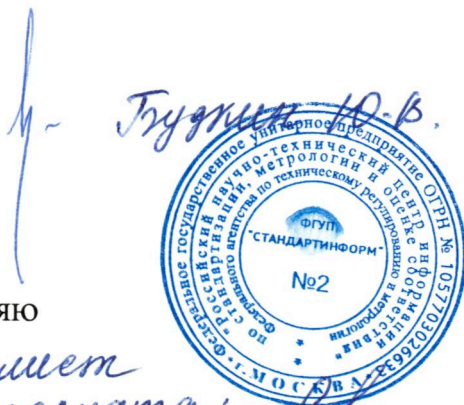 Будкин Ю.В.
Федеральное государственное унитарное предприятие ОГРН № 1057703026633
"Российский научно-технический центр информации
по стандартизации, метрологии и оценке соответствия"
Федерального агентства по техническому регулированию и метрологии
ФГУП
"СТАНДАРТИНФОРМ"
№2
г. МОСКВА
яю